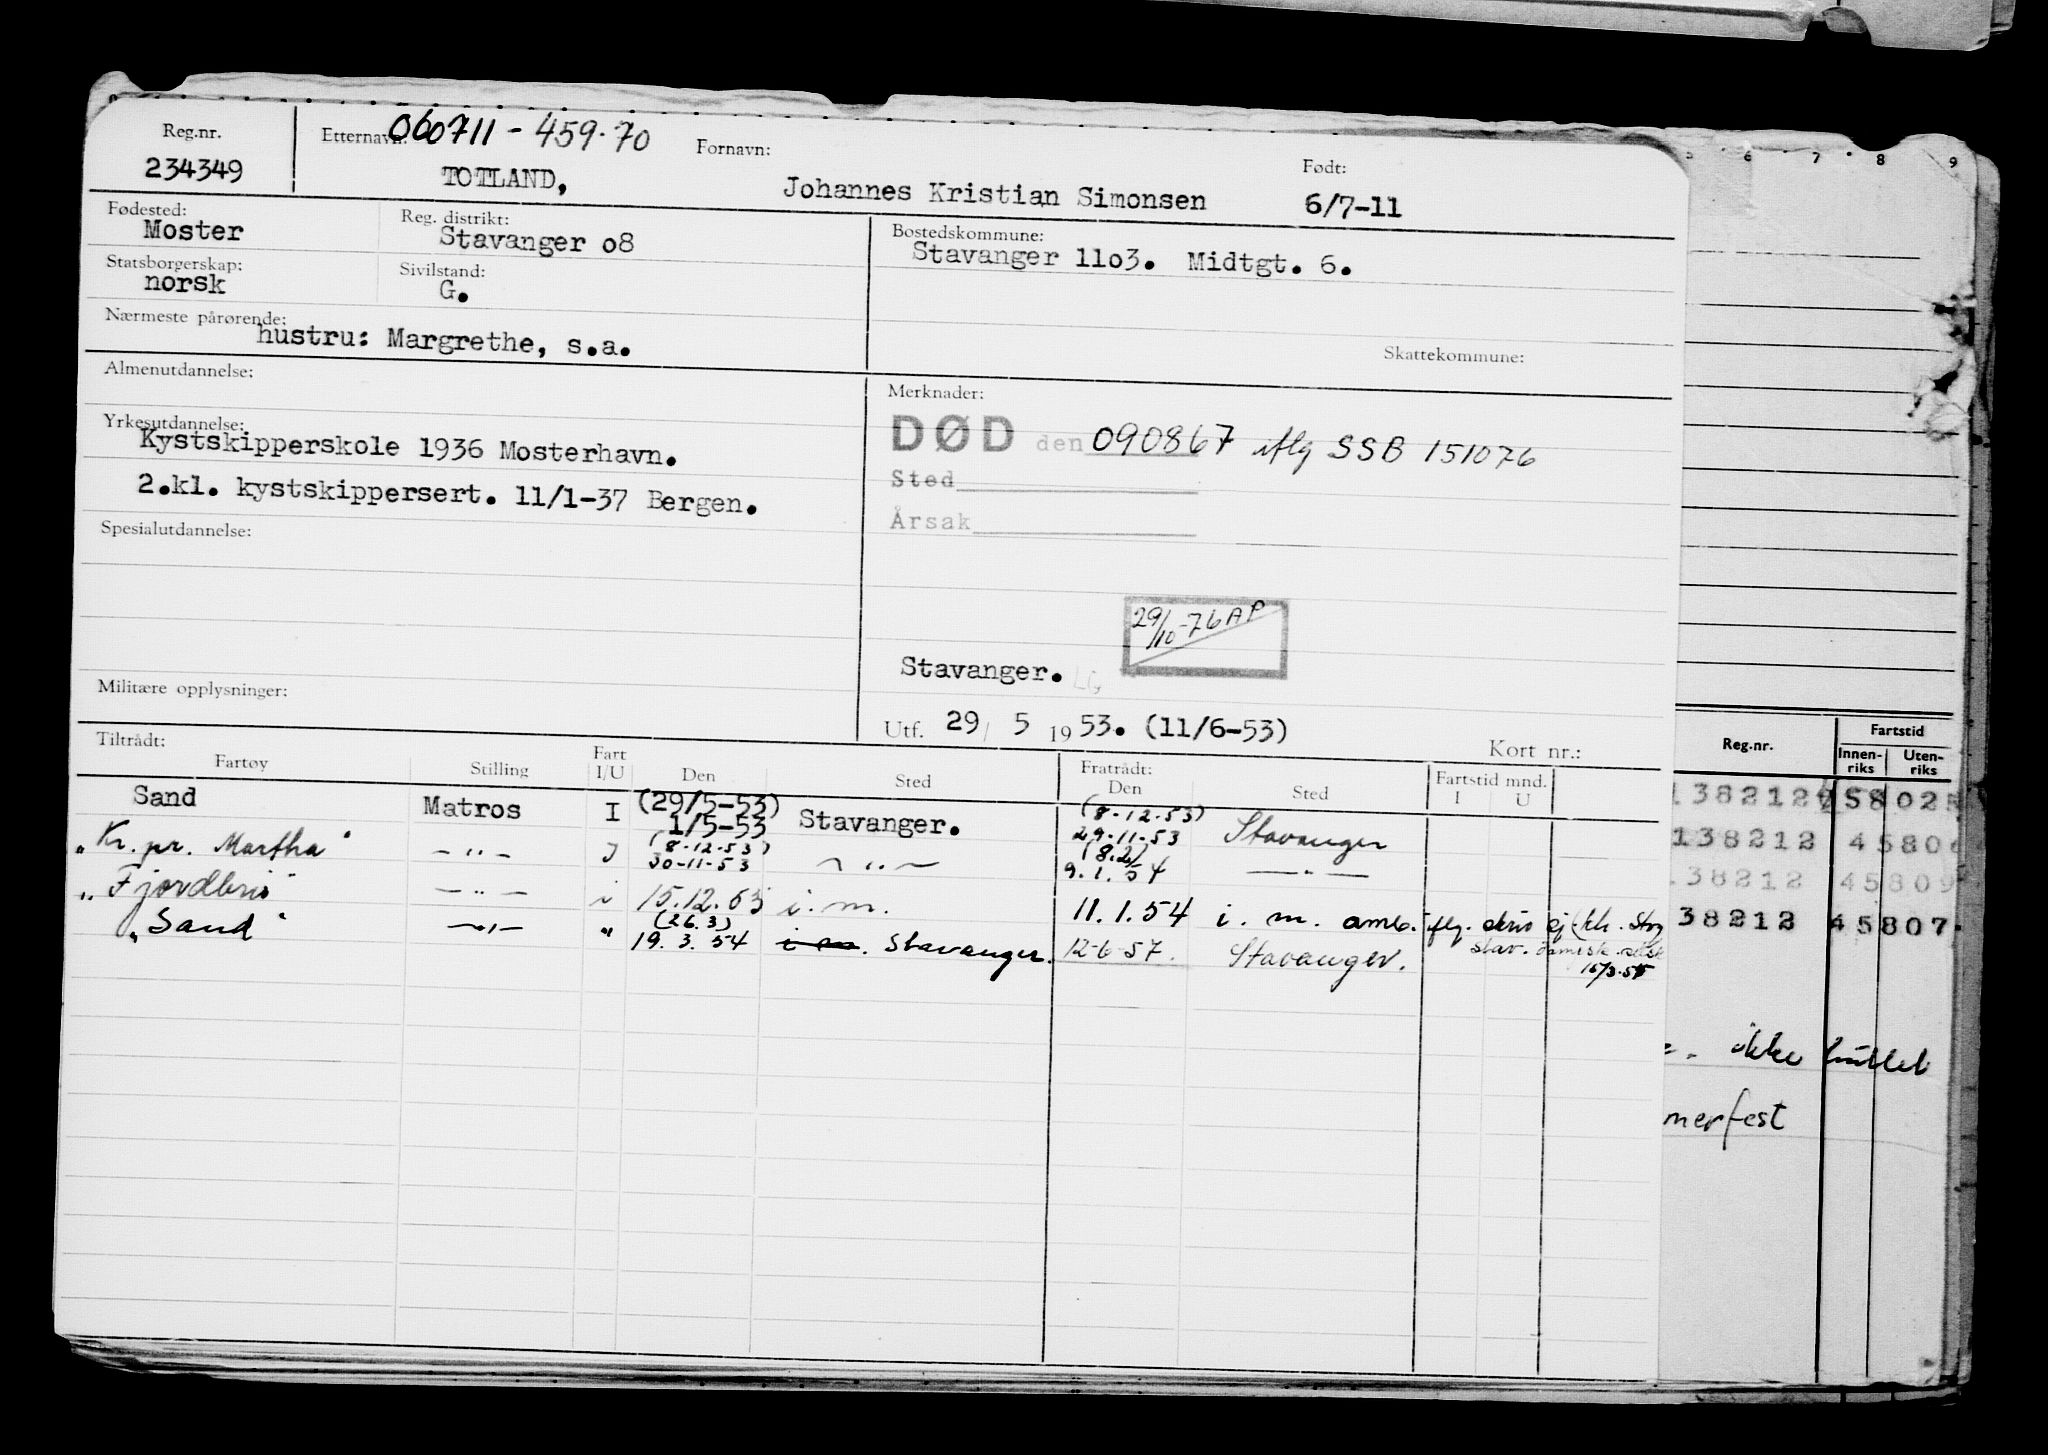 Reg.nr. Etternavn: 060711-459.70 Fornavn: Født:
234349 TOTLAND, Johannes Kristian Simonsen 6/7-11
Fødested: Reg. distrikt: Bostedskommune:
Moster Stavanger o8 Stavanger 11o3. Midtgt. 6.
Statsborgerskap: Sivilstand:
norsk G.
Nærmeste pårørende:
hustru: Margrethe, s.a.
Skattekommune:
Almenutdannelse: Merknader:
Yrkesutdannelse: DØD den 090867 iflg SSB 151076
Kystskipperskole 1936 Mosterhavn.
Sted
2.kl. kystskippersert. 11/1-37 Bergen.
Årsak
Spesialutdannelse:
29/10-76 AP
Stavanger.
Militære opplysninger:
Utf. 29/ 5 1953. (11/6-53)
Kort nr.:
Tiltrådt: Fratrådt:
Fartøy Stilling Fart I/U Den Sted Den Sted Fartstid mnd. I U
Sand Matros I (29/5-53) 1/5-53 Stavanger. (8-12-53) 29-11-53 Stavanger
"Kr. pr. Martha" - " - I (8-12-53) 30-11-53 - " - 9.1.54 - " -
- " - i 15.12.53 i.m. 11.1.54 i.m. iflg. skriv
"Sand" - " - " (26.3) 19.3.54 i m. Stavanger. 12-6-57. Stavanger.
15/3-55
6 7 8 9
Reg.nr. Fartstid
Innen-riks Uten-riks
138212 458025
138212 45806
38212 45809
38212 45807
ikke
merfest